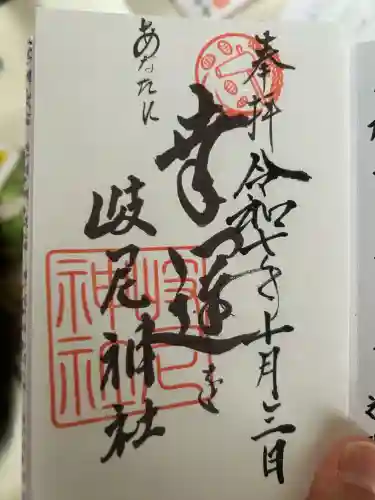 奉拝 令和七年十月三日
あなたに
幸運を
岐尼神社
岐尼
神社